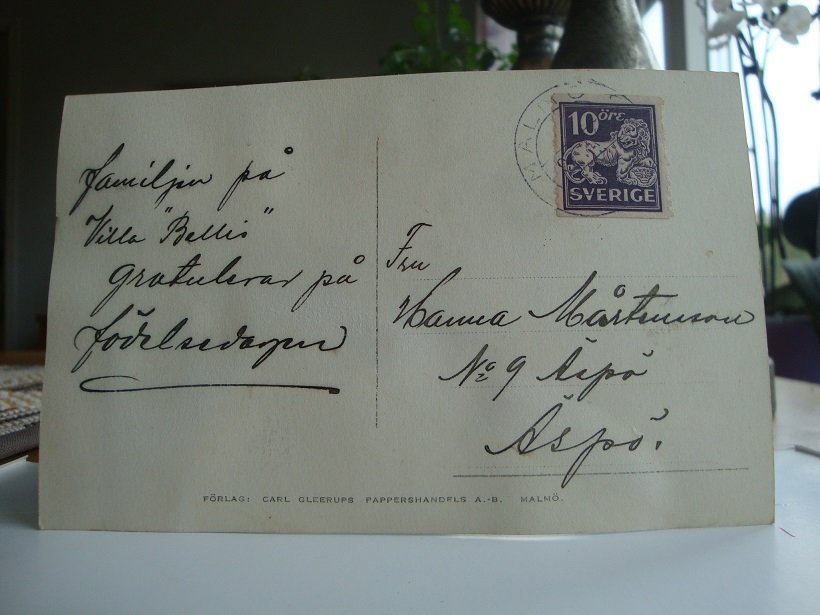 familjen på
Villa "Bellis"
gratulerar på
födelsedagen
MALMÖ
10 öre
SVERIGE
Fru
Hanna Mårtensson
No 9 Äspö
Äspö.
FÖRLAG: CARL GLEERUPS PAPPERSHANDELS A.-B. MALMÖ.